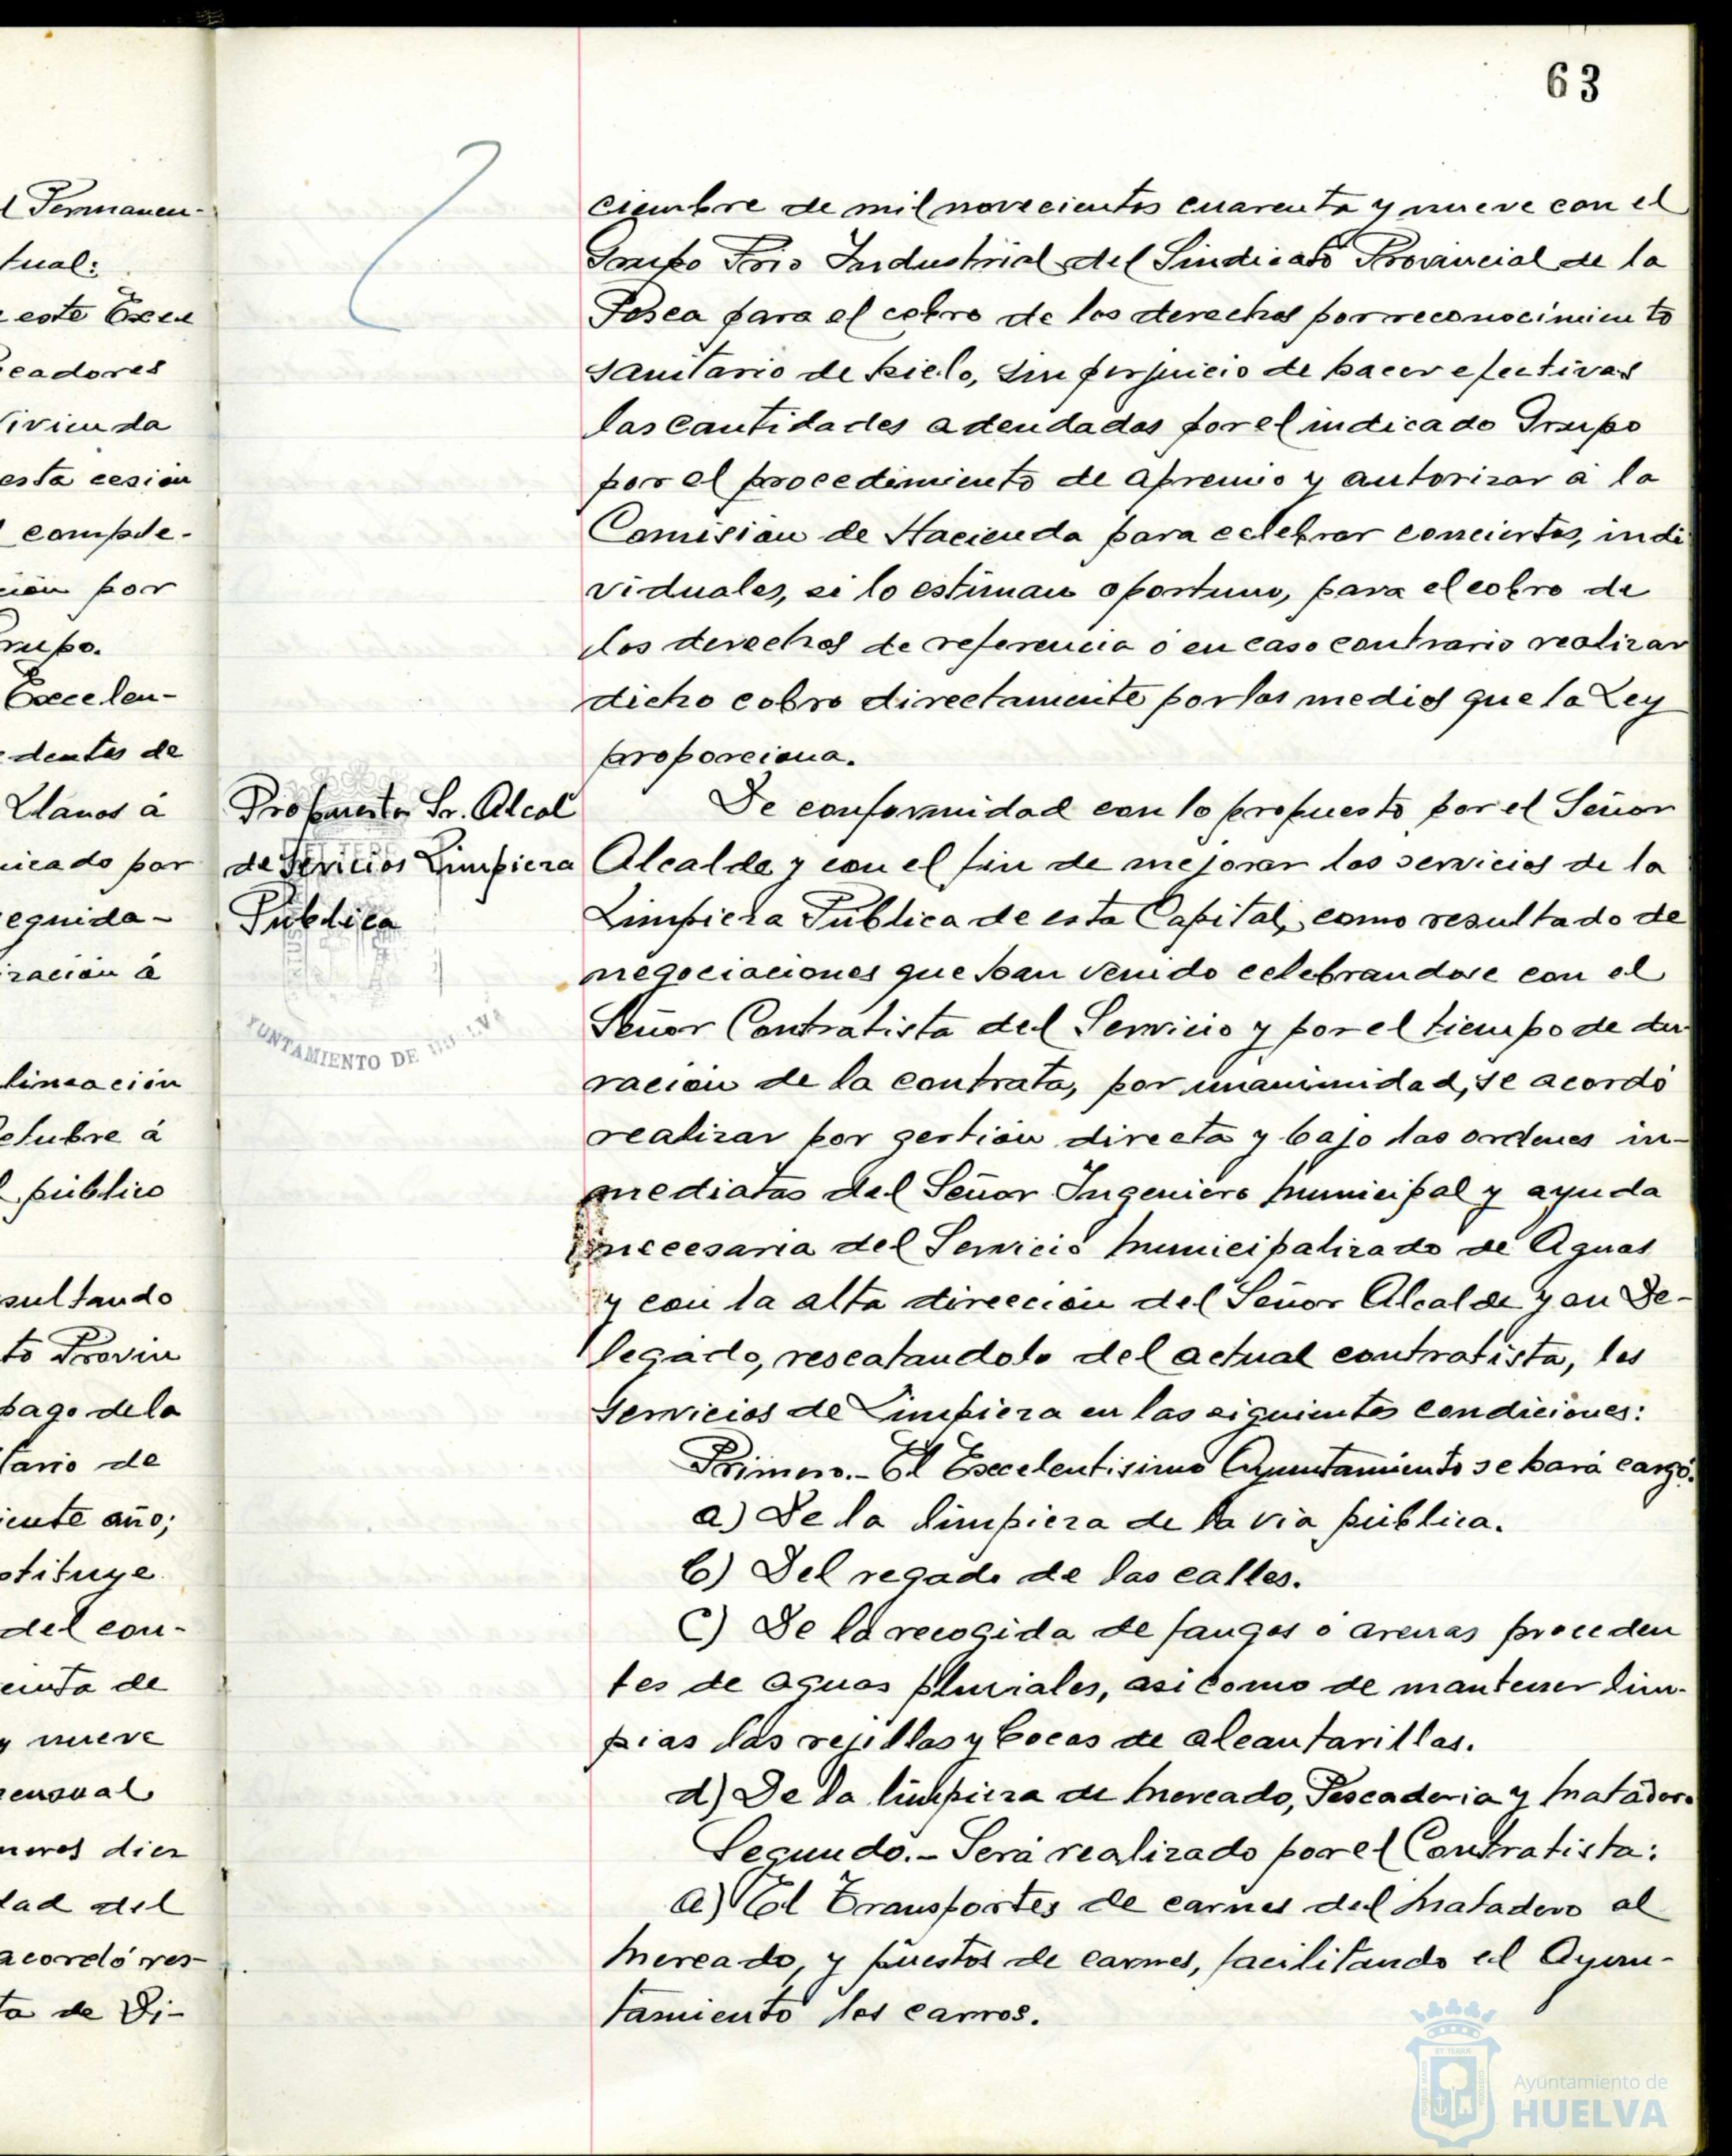 63
l Permanen-
tual:
este Exce
eadores
ivienda
esta cesión
compde-
ción por
rupo.
Excelen-
dentes de
Llanos á
nicado por
eguida-
ización á
lineación
ctubre á
l público
sultando
to Provin
pago de la
tario de
iente año;
stituye
del con-
enta de
y nueve
ensual
meros diez
dad del
acordó res-
ta de Di-
ciembre de mil novecientos cuarenta y nueve con el
Grupo Frio Industrial del Sindicato Provincial de la
Pesca para el cobro de los derechos por reconocimiento
sanitario de hielo, sin perjuicio de hacer efectivas
las cantidades adeudadas por el indicado Grupo
por el procedimiento de apremio y autorizar á la
Comisión de Hacienda para celebrar conciertos, indi
viduales, si lo estiman oportuno, para el cobro de
los derechos de referencia ó en caso contrario realizar
dicho cobro directamente por los medios que la Ley
proporciona.
Propuesta Sr. Alcal
de Servicios Limpieza
Pública
AYUNTAMIENTO DE HUELVA
De conformidad con lo propuesto por el Señor
Alcalde y con el fin de mejorar los servicios de la
Limpieza Pública de esta Capital, como resultado de
negociaciones que han venido celebrandose con el
Señor Contratista del Servicio y por el tiempo de du-
ración de la contrata, por unanimidad, se acordó
realizar por gestión directa y bajo las ordenes in-
mediatas del Señor Ingeniero municipal y ayuda
necesaria del Servicio Municipalizado de Aguas
y con la alta dirección del Señor Alcalde y su De-
legado, rescatandolo del actual contratista, los
servicios de Limpieza en las siguientes condiciones:
Primero.- El Excelentisimo Ayuntamiento se hará cargo:
a) De la limpieza de la via pública.
b) Del regado de las calles.
c) De la recogida de fangos ó arenas proceden
tes de aguas pluviales, asi como de mantener lim-
pias las rejillas y bocas de alcantarillas.
d) De la limpieza de Mercado, Pescaderia y Matadero
Segundo.- Será realizado por el Contratista:
a) El Transportes de carnes del Matadero al
Mercado, y puestos de carnes, facilitando el Ayun-
tamiento los carros.
Ayuntamiento de
HUELVA